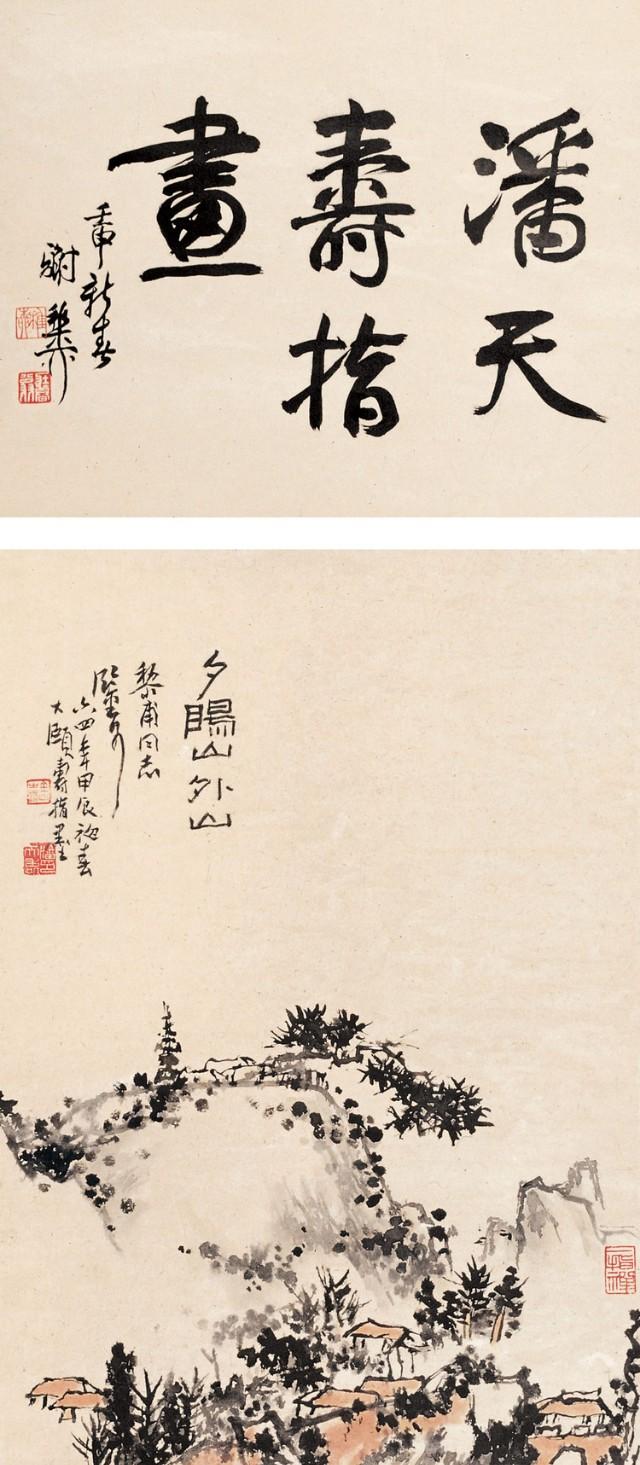 潘天
壽指
畫
壬申新春
謝稚柳
夕陽山外山
黎甫同志
鑒可
六四年甲辰初春
大頤壽指墨